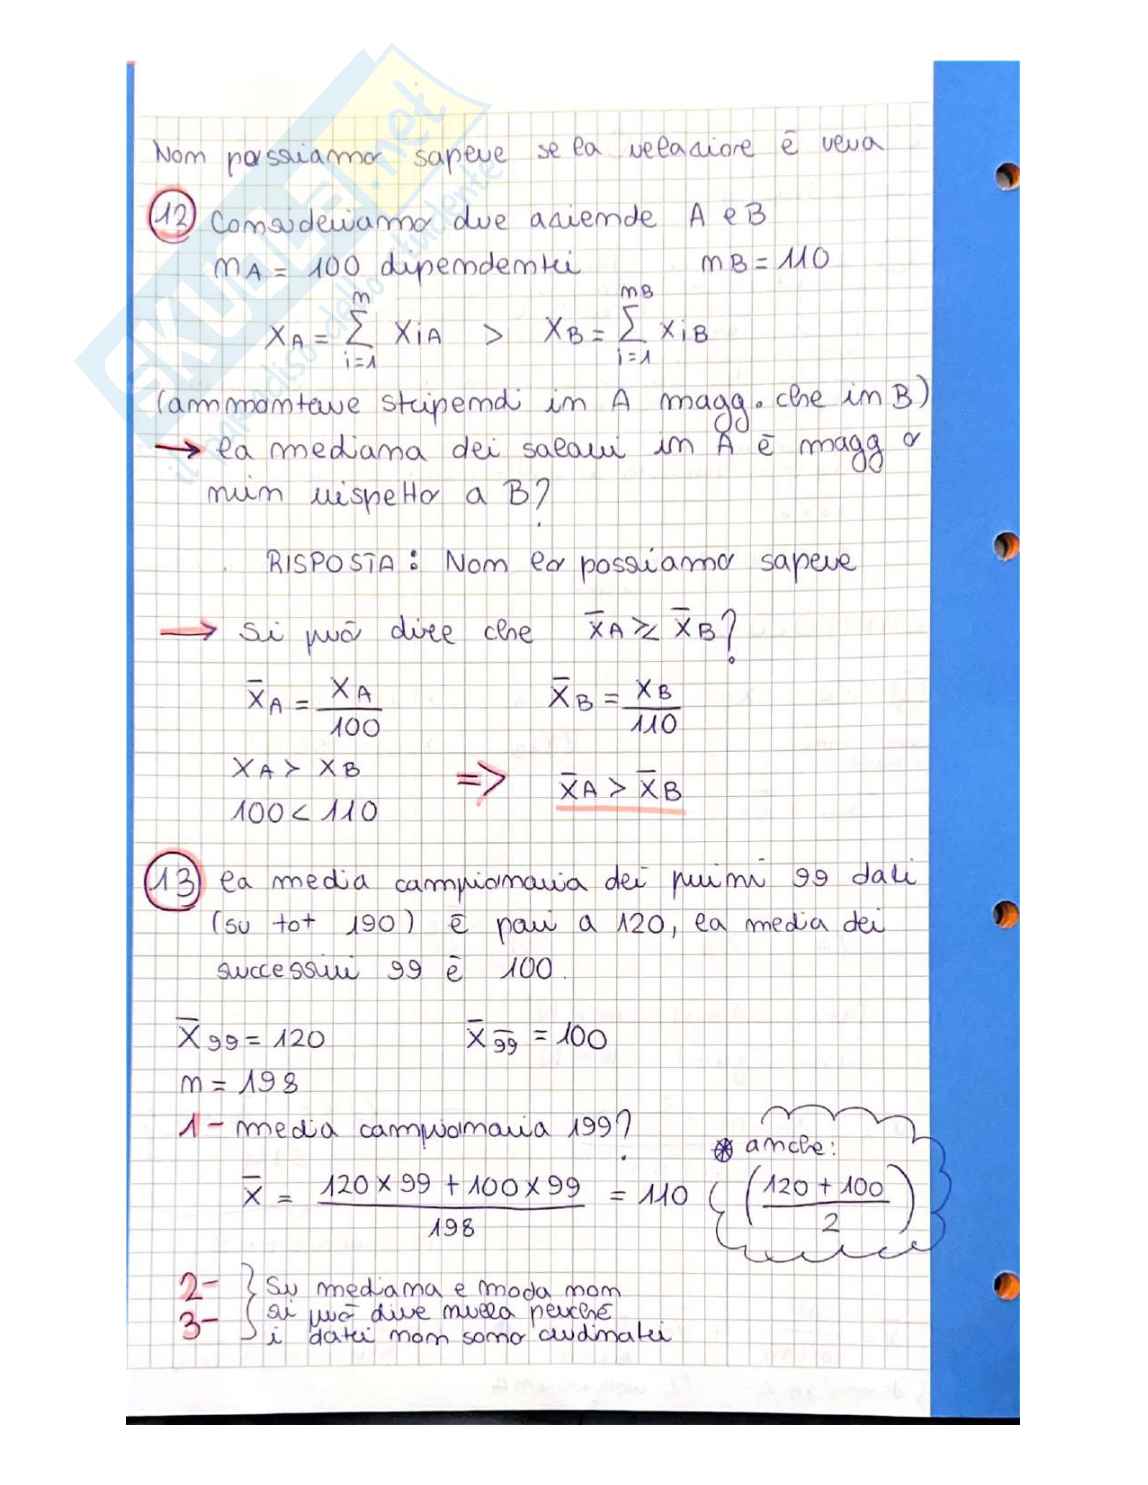 Non possiamo sapere se la relazione è vera
12 Consideriamo due aziende A e B
nA = 100 dipendenti nB = 110
XA = n∑i=1 XiA > XB = nB∑i=1 XiB
(ammontare stipendi in A magg. che in B)
→ la mediana dei salari in A è magg o
min rispetto a B?
RISPOSTA: Non lo possiamo sapere
→ Si può dire che X̄A ≥ X̄B?
X̄A = XA/100 X̄B = XB/110
XA > XB
100 < 110 ⇒ X̄A > X̄B
13 la media campionaria dei primi 99 dati
(su tot 190) è pari a 120, la media dei
successivi 99 è 100.
X̄99 = 120 X̄9̄9̄ = 100
n = 198
1- media campionaria 199?
* anche:
X̄ = (120 × 99 + 100 × 99)/198 = 110 ((120 + 100)/2)
2- } Su mediana e moda non
3- } si può dire nulla perché
i dati non sono ordinati
SKUOLA.net
il paradiso dello studente